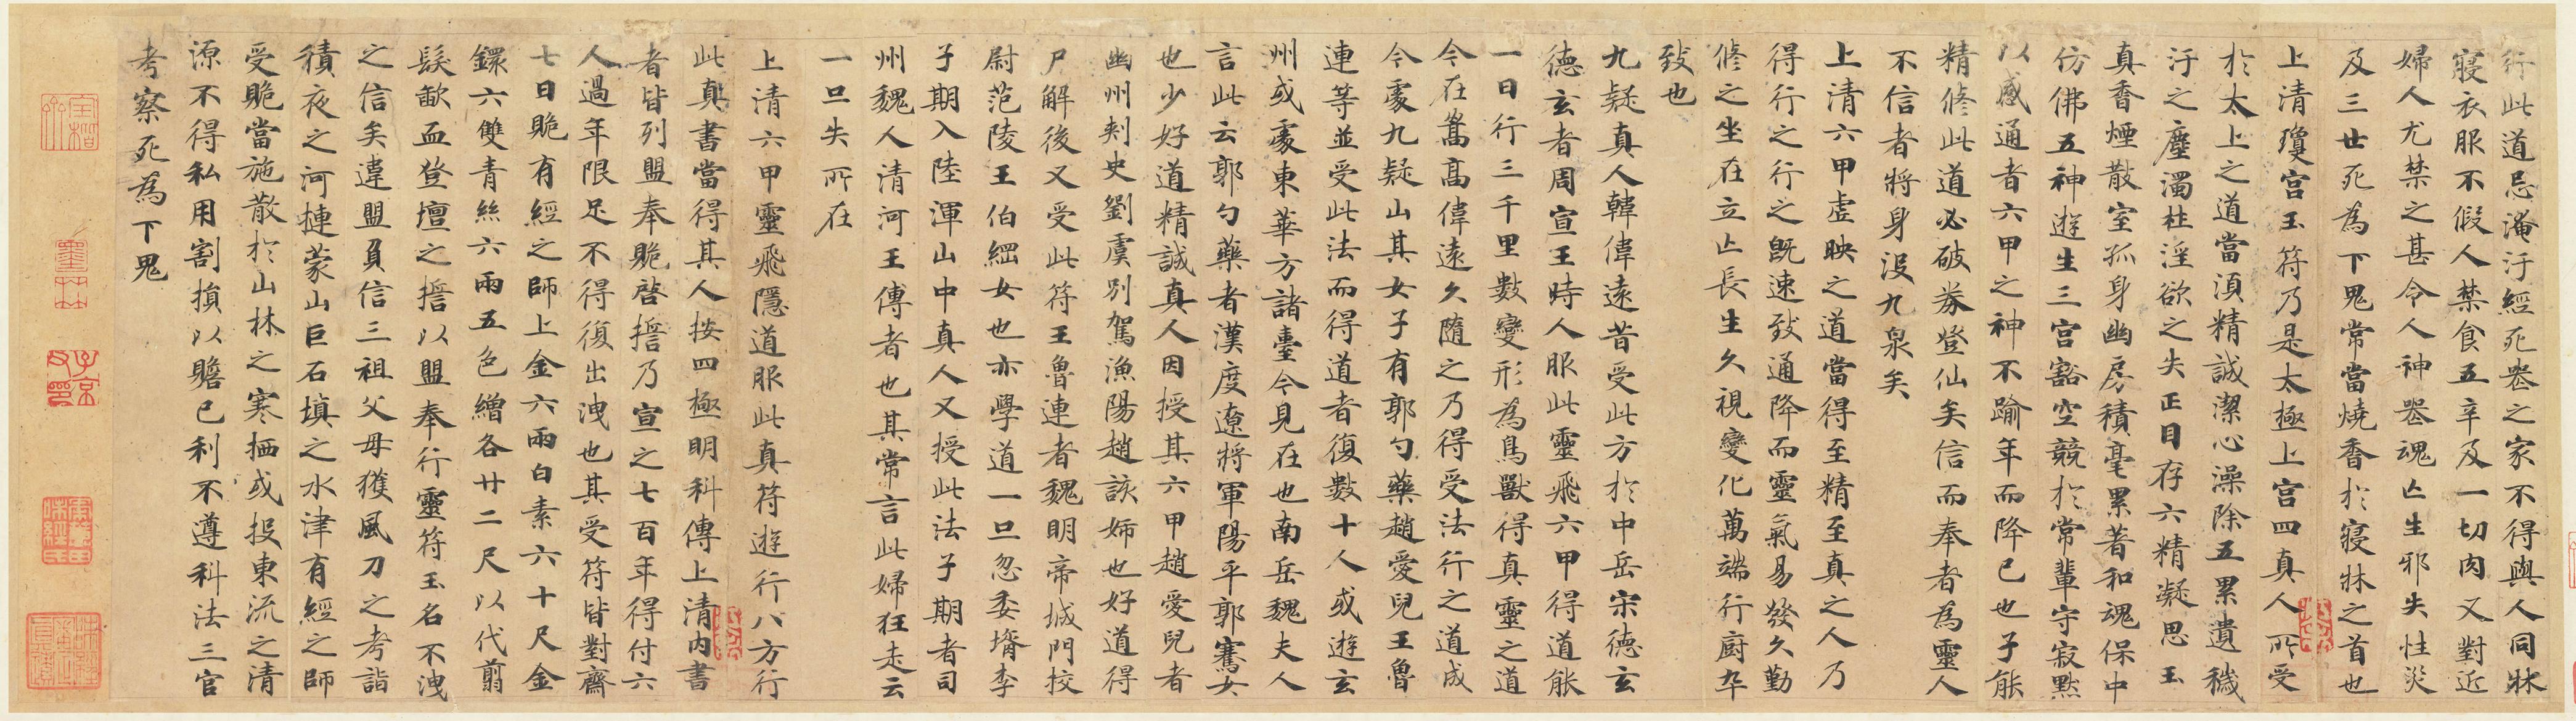 行此道忌淹汙經死喪之家不得與人同牀
寢衣服不假人禁食五辛及一切肉又對近
婦人尤禁之甚令人神喪魂亡生邪失性災
及三世死為下鬼常當燒香於寢牀之首也
上清瓊宮玉符乃是太極上宮四真人所受
於太上之道當須精誠潔心澡除五累遺穢
汙之塵濁杜淫欲之失正目存六精凝思玉
真香煙散室孤身幽房積毫累著和魂保中
仿佛五神遊生三宮豁空競於常輩守寂默
以感通者六甲之神不踰年而降已也子能
精修此道必破券登仙矣信而奉者為靈人
不信者將身沒九泉矣
上清六甲虛映之道當得至精至真之人乃
得行之行之既速致通降而靈氣易發久勤
修之坐在立亡長生久視變化萬端行廚卒
致也
九疑真人韓偉遠昔受此方於中岳宋德玄
德玄者周宣王時人服此靈飛六甲得道能
一日行三千里數變形為鳥獸得真靈之道
今在嵩高偉遠久隨之乃得受法行之道成
今處九疑山其女子有郭勺藥趙愛兒王魯
連等並受此法而得道者復數十人或遊玄
州或處東華方諸臺今見在也南岳魏夫人
言此云郭勺藥者漢度遼將軍陽平郭騫女
也少好道精誠真人因授其六甲趙愛兒者
幽州刺史劉虞別駕漁陽趙該姊也好道得
尸解後又受此符王魯連者魏明帝城門校
尉范陵王伯綱女也亦學道一旦忽委壻李
子期入陸渾山中真人又授此法子期者司
州魏人清河王傅者也其常言此婦狂走云
一旦失所在
上清六甲靈飛隱道服此真符遊行八方行
此真書當得其人按四極明科傳上清內書
者皆列盟奉贶啓誓乃宣之七百年得付六
人過年限足不得復出洩也其受符皆對齋
七日贶有經之師上金六兩白素六十尺金
鐶六雙青絲六兩五色繒各廿二尺以代翦
髮歃血登壇之誓以盟奉行靈符玉名不洩
之信矣違盟負信三祖父母獲風刀之考詣
積夜之河摙蒙山巨石填之水津有經之師
受贶當施散於山林之寒栖或投東流之清
源不得私用割損以贍己利不遵科法三官
考察死為下鬼